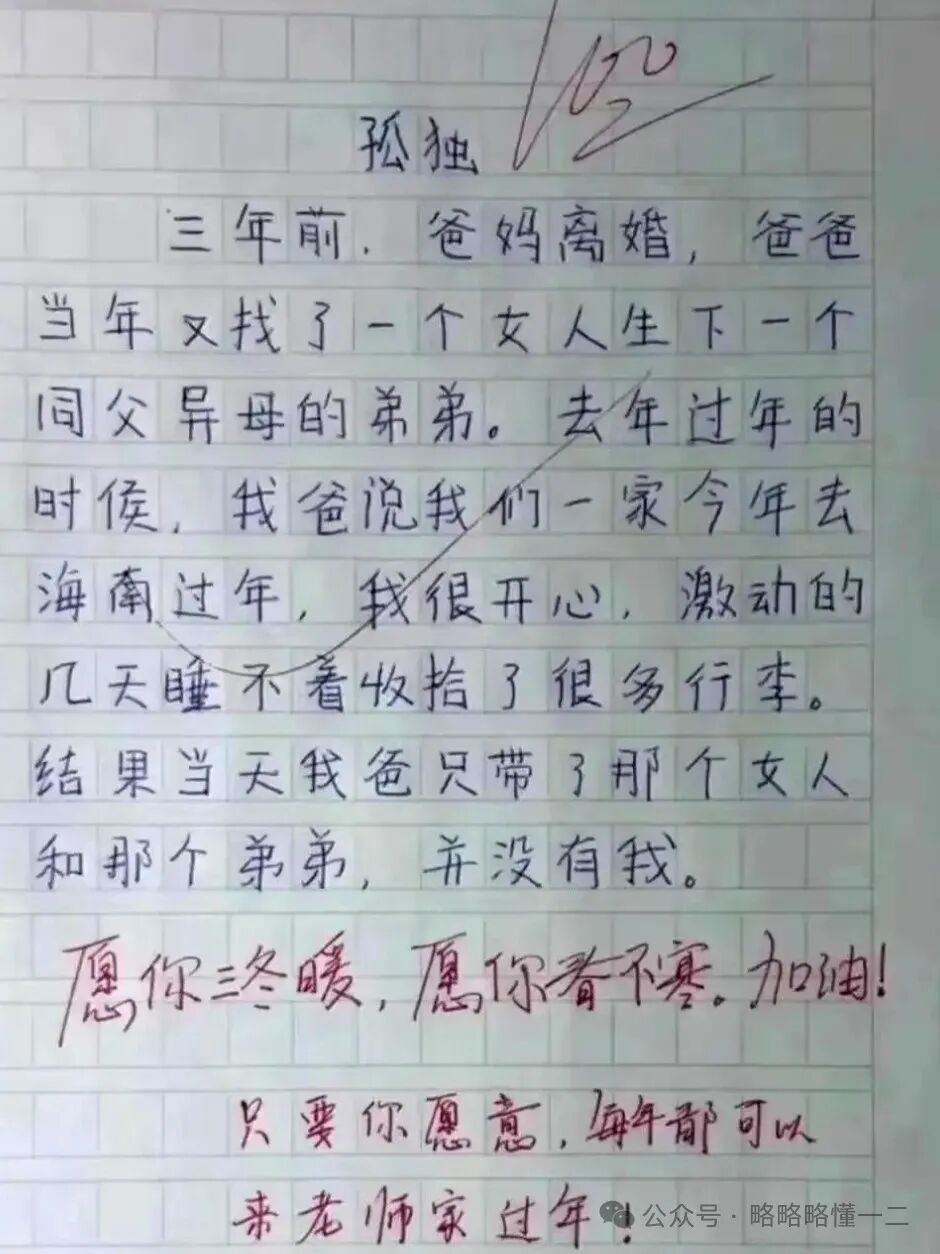 100
孤独
三年前.爸妈离婚,爸爸
当年又找了一个女人生下一个
同父异母的弟弟。去年过年的
时侯,我爸说我们一家今年去
海南过年,我很开心,激动的
几天睡不着收拾了很多行李。
结果当天我爸只带了那个女人
和那个弟弟,并没有我。
愿你三冬暖,愿你春不寒。加油!
只要你愿意,每年都可以
来老师家过年!
公众号·略略略懂一二